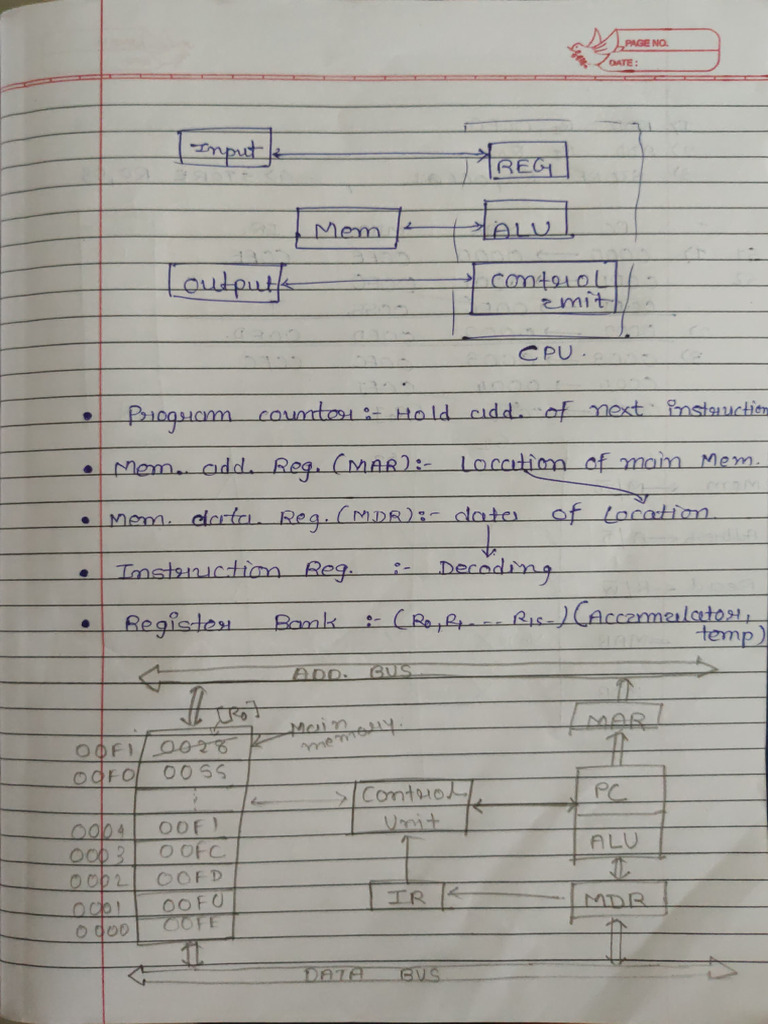 PAGE NO.
DATE:
Input
REG
Mem
ALU
Output
Control
unit
CPU.
• Program counter:- Hold add. of next instruction
• Mem. add. Reg. (MAR):- Location of main Mem.
• Mem. data Reg. (MDR):- data of Location.
• Instruction Reg. :- Decoding
• Register Bank :- (R0, R1 --- R15-) (Accumulator,
temp)
ADD. BUS
[R0]
Main
memory.
MAR
00F1 0028
00F0 0055
Control
Unit
PC
0004 00F1
ALU
0003 00FC
0002 00FD
IR
MDR
0001 00F0
0000 00FE
DATA BUS